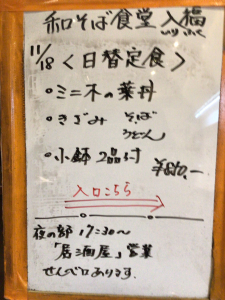 和そば食堂 入福
11/18 〈日替定食〉
○ミニ木の葉丼
○きざみ そば
うどん
○小鉢2品付
¥880.-
入口こちら
夜の部 17:30〜
「居酒屋」営業
せんべろあります。